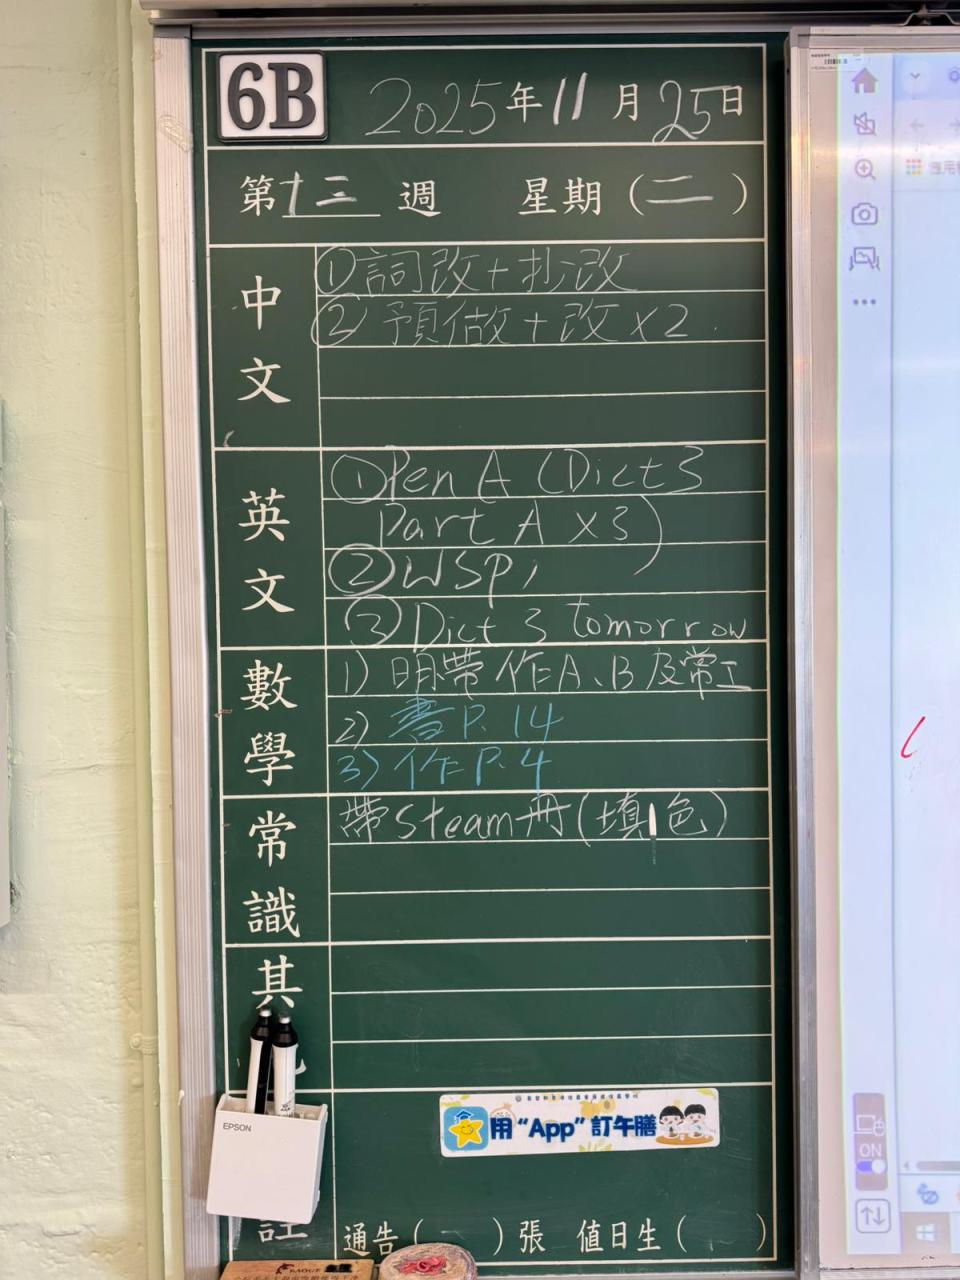 6B 2025年11月25日
第十三週 星期(二)
中文
①詞改+抄改
②預做+改x2
英文
①Pen A (Dict 3
Part A x3)
②WSP1
③Dict 3 tomorrow
數學
1) 明帶作A、B及常工
2) 書P.14
3) 作P.4
常識
帶Steam冊(填色)
其
用“App”訂午膳
EPSON
註
通告(一)張 值日生( )
ON